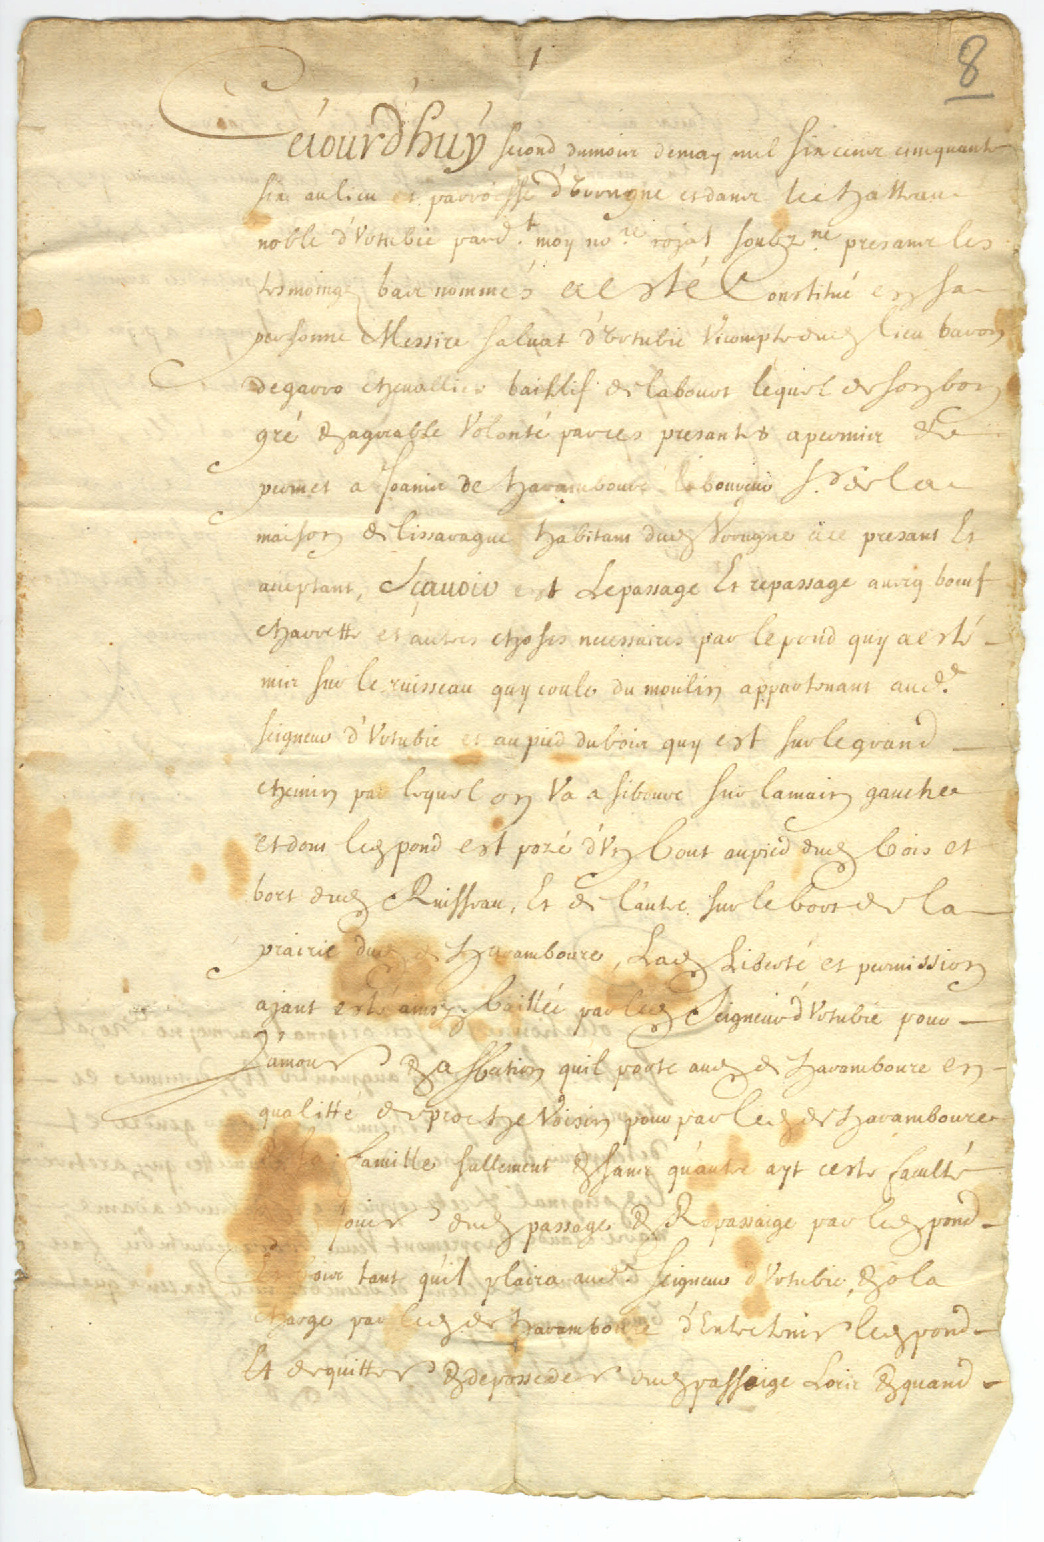 1
8
Cejourdhuy second du mois de may mil six cens cinquante
six au lieu et parroisse d'Urrugne et dans le chatteau
noble d'Urtubie pard.t moy no.re royal soubz.né presans les
tesmoings bas nommés a esté Constitué en sa
personne Messire Salvat d'Urtubie Vicompte dud lieu baron
de garro chevallier baillif de labourt lequel de son bon
gré & agreable Volonté par ces presantes a permis &
permet a Joanis de haramboure laboureur S.r de la
maison de lissarague habitant dud Urrugne ice presant Et
aceptant, Sçavoir est Le passage Et repassage avecq bœuf
charrette et autres choses necessaires par le pond quy a esté
mis sur le ruisseau quy coule du moulin appartenant aud.
seigneur d'Urtubie et au pied du bois quy est sur le grand
chemin par lequel on Va a siboure sur la main gauche
et dont led pond est pozé d'Un bout au pied dud bois et
bort dud Ruisseau, Et de l'autre sur le bort de la
prairie dud de haramboure, Lad Liberté et permission
ajant esté ainsy baillée par led Seigneur d'Urtubie pour
L'amour & affection quil porte aud de haramboure en
qualitté de proche Voisin pour par led de haramboure
& sa famille sullement & sans qu'autre ayt ceste faculté
jouir dud passage & Repassaige par led pond
Et pour tant qu'il plaira aud. Seigneur d'Urtubie, & a la
charge par led de haramboure d'Entretenir led pond
Et de quitter & deposseder dud passaige Lors & quand